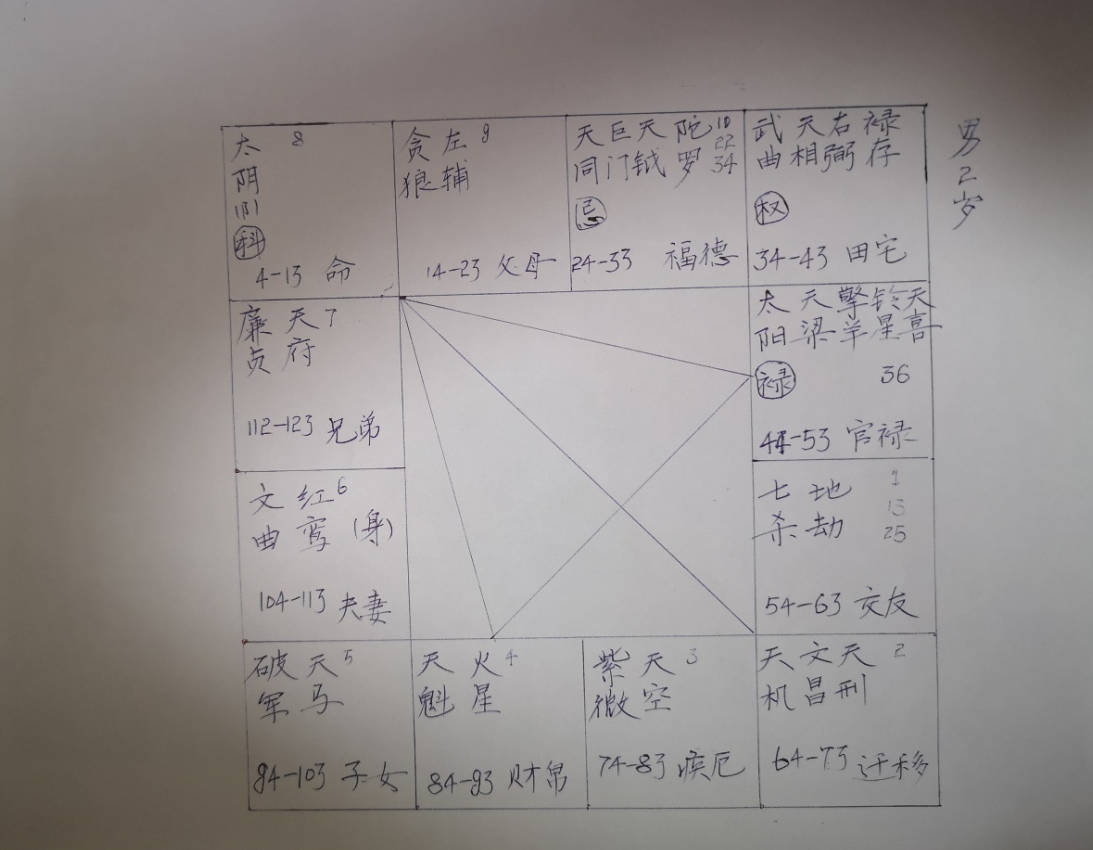 太 8
阴
科
4-13 命
贪左 9
狼辅
14-23 父母
天巨天陀 10
同门钺罗 22
34
忌
24-33 福德
武天右禄
曲相弼存
权
34-43 田宅
男2岁
廉天 7
贞府
112-123 兄弟
太天擎铃天
阳梁羊星喜
禄 36
44-53 官禄
文红 6
曲鸾 (身)
104-113 夫妻
七地 1
杀劫 13
25
54-63 交友
破天 5
军马
94-103 子女
天火 4
魁星
84-93 财帛
紫天 3
微空
74-83 疾厄
天文天 2
机昌刑
64-73 迁移